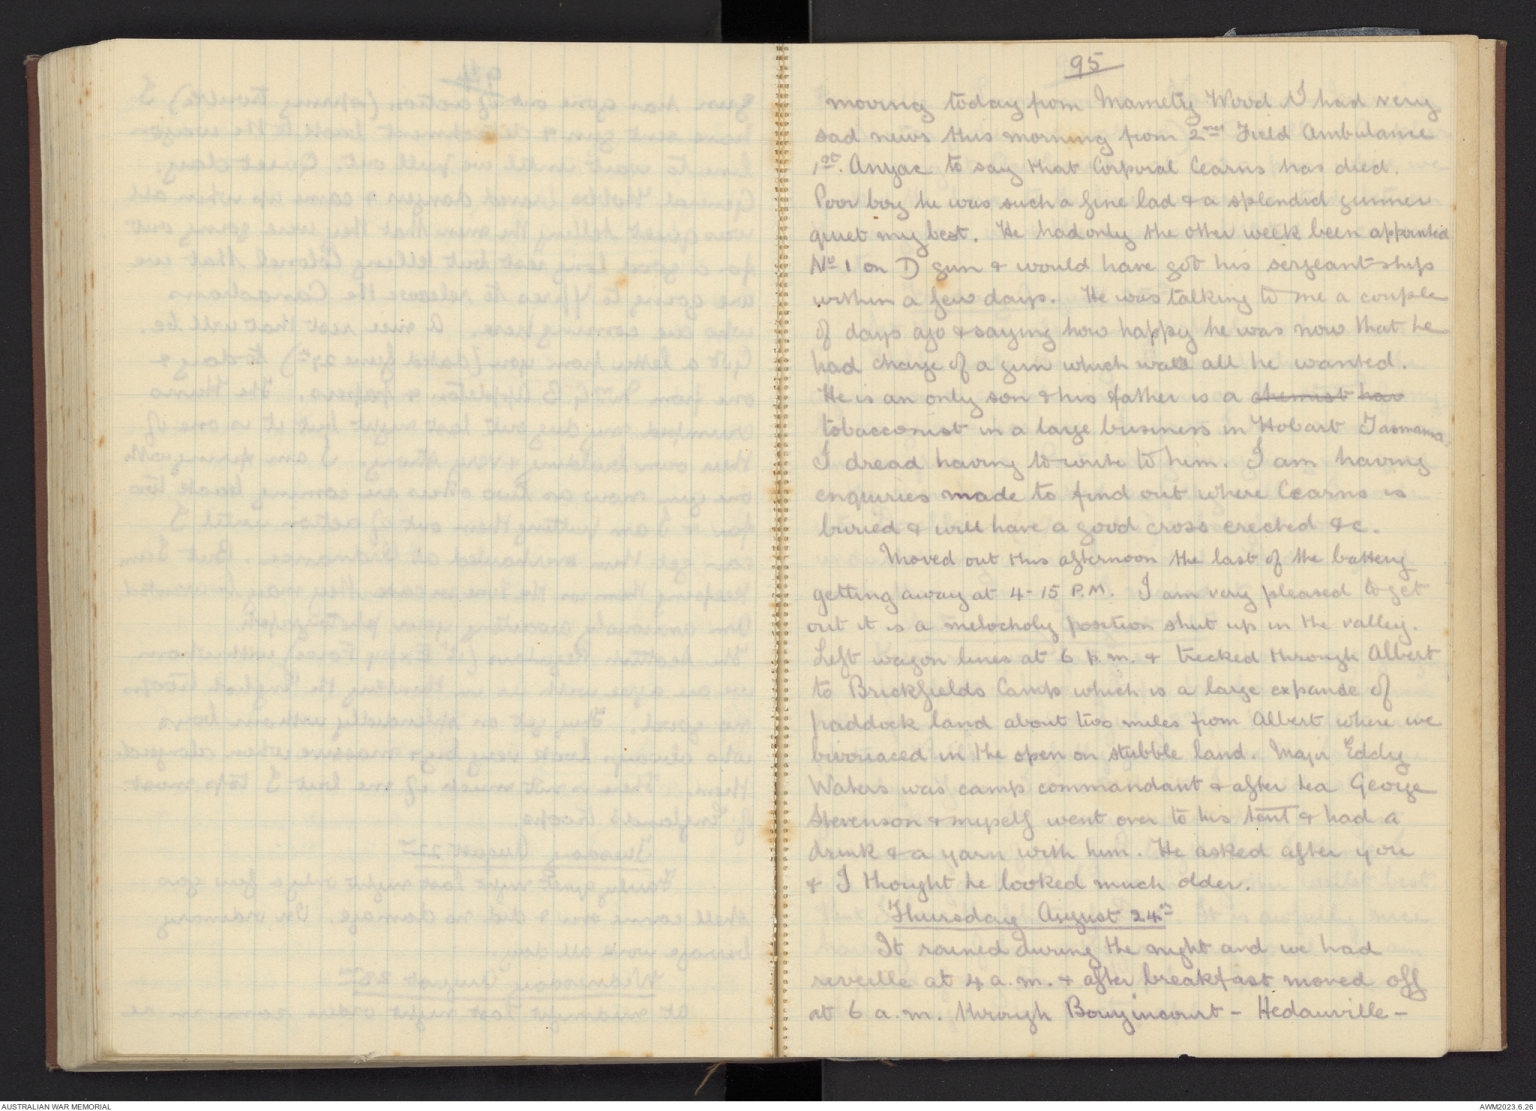 95
moving today from Mametz Wood. I had very
sad news this morning from 2nd Field Ambulance
1st. Anzac to say that Corporal Cearns has died.
Poor boy he was such a fine lad & a splendid gunner
quiet my best. He had only the other week been appointed
No 1 on D gun & would have got his sergeant-ships
within a few days. He was talking to me a couple
of days ago & saying how happy he was now that he
had charge of a gun which was all he wanted.
He is an only son & his father is a chemist has
tobacconist in a large business in Hobart Tasmania.
I dread having to write to him. I am having
enquiries made to find out where Cearns is
buried & will have a good cross erected &c.
Moved out this afternoon the last of the battery
getting away at 4-15 P.M. I am very pleased to get
out it is a melocholy position shut up in the valley.
Left wagon lines at 6 p.m. & trecked through Albert
to Brickfields Camp which is a large expanse of
paddock land about two miles from Albert where we
bivouaced in the open on stubble land. Major Eddy
Waters was camp commandant & after tea George
Stevenson & myself went over to his tent & had a
drink & a yarn with him. He asked after you
& I thought he looked much older.
Thursday August 24th
It rained during the night and we had
reveille at 4 a.m. & after breakfast moved off
at 6 a.m. through Bouzincourt - Hedauville -
AUSTRALIAN WAR MEMORIAL
AWM2023.6.26